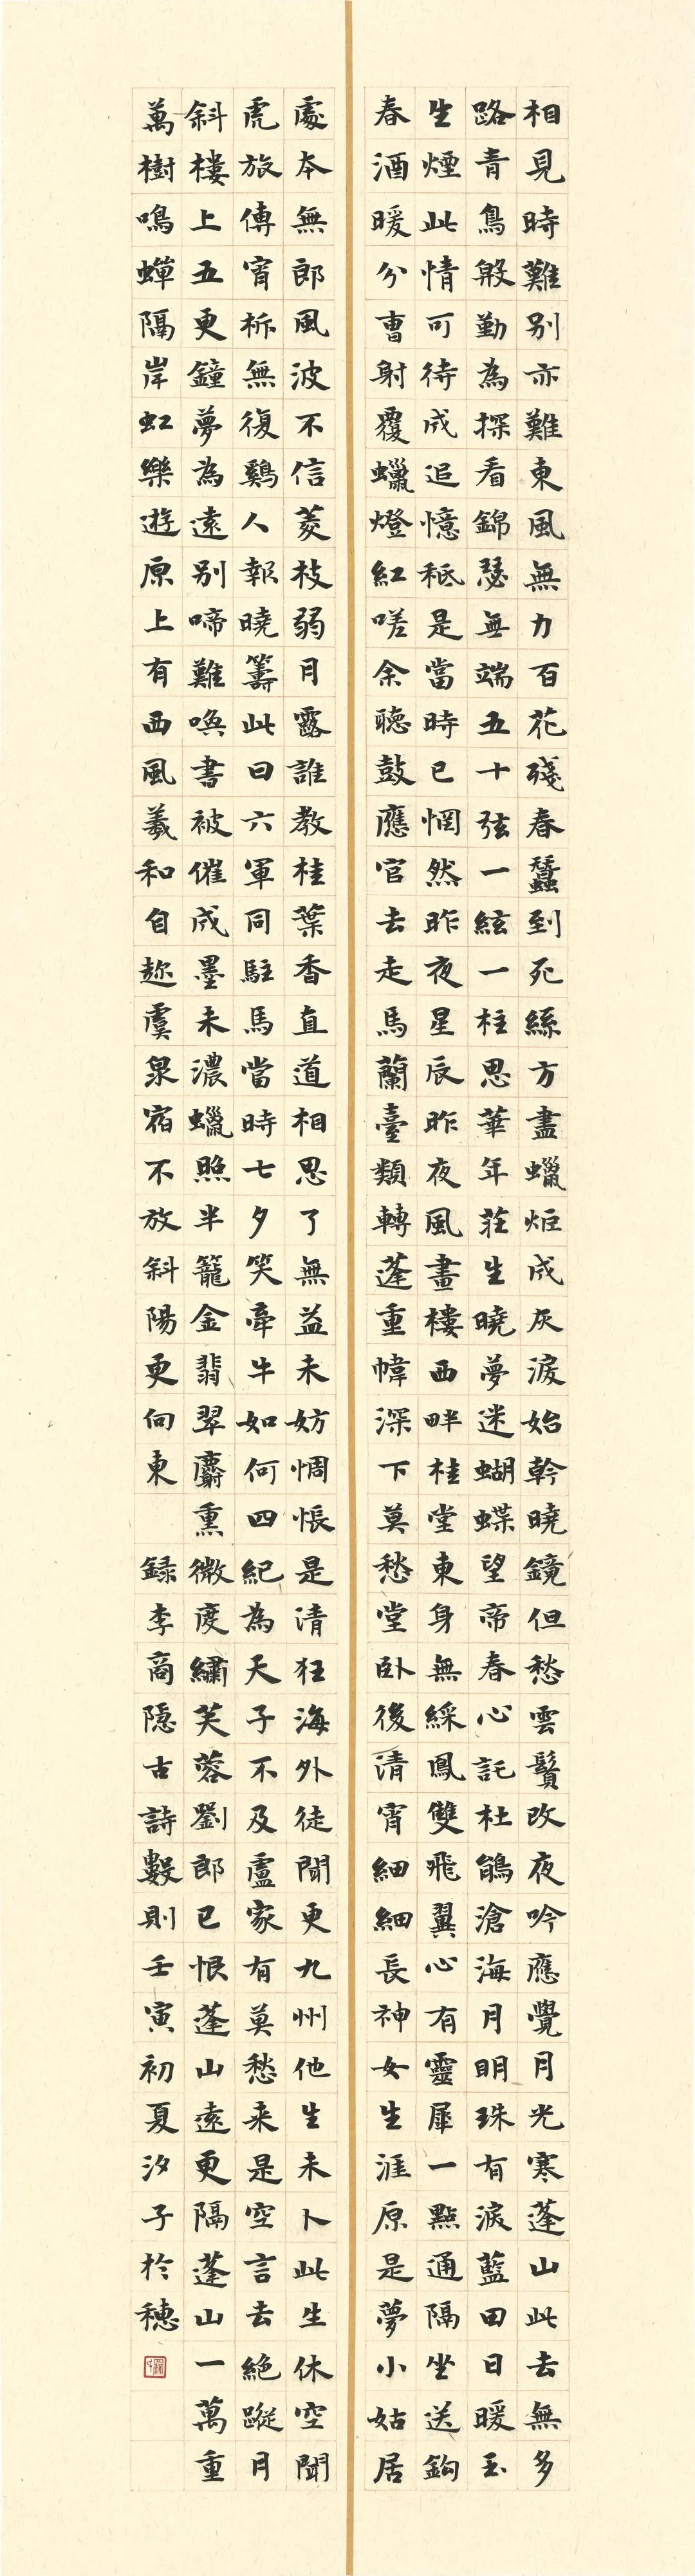 相見時難别亦難東風無力百花殘春蠶到死絲方盡蠟炬成灰淚始幹曉鏡但愁雲鬢改夜吟應覺月光寒蓬山此去無多
路青鳥殷勤為探看錦瑟無端五十弦一絃一柱思華年莊生曉夢迷蝴蝶望帝春心託杜鵑滄海月明珠有淚藍田日暖玉
生煙此情可待成追憶秪是當時已惘然昨夜星辰昨夜風畫樓西畔桂堂東身無綵鳳雙飛翼心有靈犀一點通隔坐送鈎
春酒暖分曹射覆蠟燈紅嗟余聽鼓應官去走馬蘭臺類轉蓬重幃深下莫愁堂卧後清宵細細長神女生涯原是夢小姑居
處本無郎風波不信菱枝弱月露誰教桂葉香直道相思了無益未妨惆悵是清狂海外徒聞更九州他生未卜此生休空聞
虎旅傳宵柝無復鷄人報曉籌此日六軍同駐馬當時七夕笑牽牛如何四紀為天子不及盧家有莫愁来是空言去絕蹤月
斜樓上五更鐘夢為遠别啼難喚書被催成墨未濃蠟照半籠金翡翠麝熏微度繡芙蓉劉郎已恨蓬山遠更隔蓬山一萬重
萬樹鳴蟬隔岸虹樂遊原上有西風羲和自趂虞泉宿不放斜陽更向東 録李商隱古詩數則壬寅初夏汐子於穗